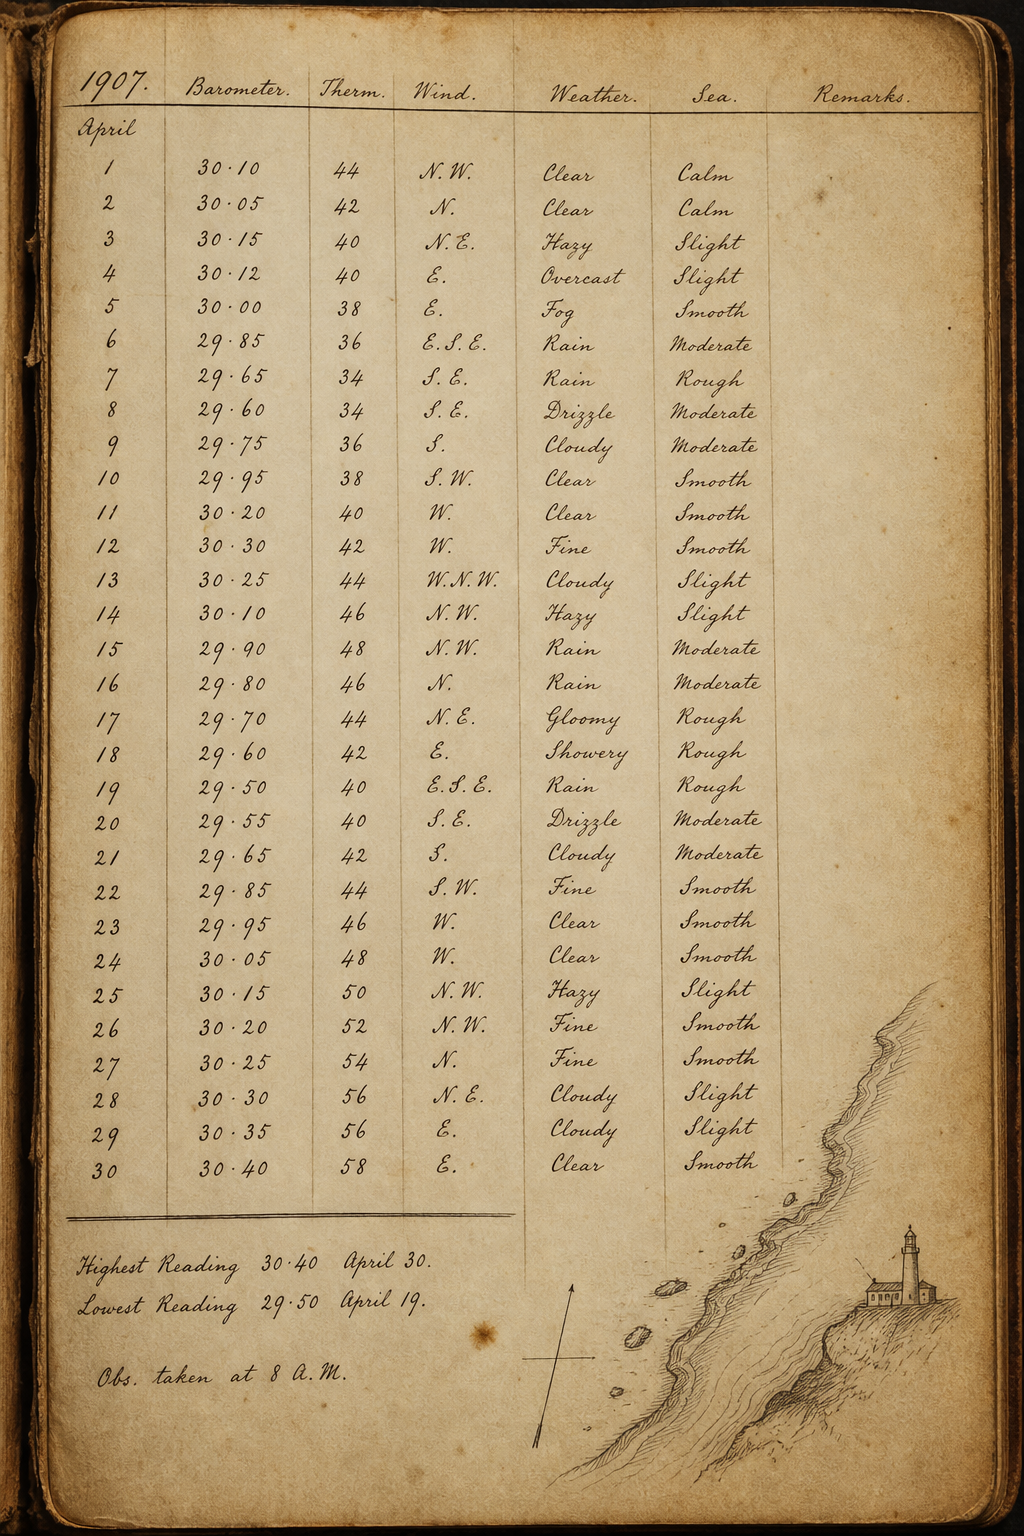 1907. Barometer. Therm. Wind. Weather. Sea. Remarks.
April
1 30·10 44 N.W. Clear Calm
2 30·05 42 N. Clear Calm
3 30·15 40 N.E. Hazy Slight
4 30·12 40 E. Overcast Slight
5 30·00 38 E. Fog Smooth
6 29·85 36 E.S.E. Rain Moderate
7 29·65 34 S.E. Rain Rough
8 29·60 34 S.E. Drizzle Moderate
9 29·75 36 S. Cloudy Moderate
10 29·95 38 S.W. Clear Smooth
11 30·20 40 W. Clear Smooth
12 30·30 42 W. Fine Smooth
13 30·25 44 W.N.W. Cloudy Slight
14 30·10 46 N.W. Hazy Slight
15 29·90 48 N.W. Rain Moderate
16 29·80 46 N. Rain Moderate
17 29·70 44 N.E. Gloomy Rough
18 29·60 42 E. Showery Rough
19 29·50 40 E.S.E. Rain Rough
20 29·55 40 S.E. Drizzle Moderate
21 29·65 42 S. Cloudy Moderate
22 29·85 44 S.W. Fine Smooth
23 29·95 46 W. Clear Smooth
24 30·05 48 W. Clear Smooth
25 30·15 50 N.W. Hazy Slight
26 30·20 52 N.W. Fine Smooth
27 30·25 54 N. Fine Smooth
28 30·30 56 N.E. Cloudy Slight
29 30·35 56 E. Cloudy Slight
30 30·40 58 E. Clear Smooth
Highest Reading 30·40 April 30.
Lowest Reading 29·50 April 19.
Obs. taken at 8 A.M.